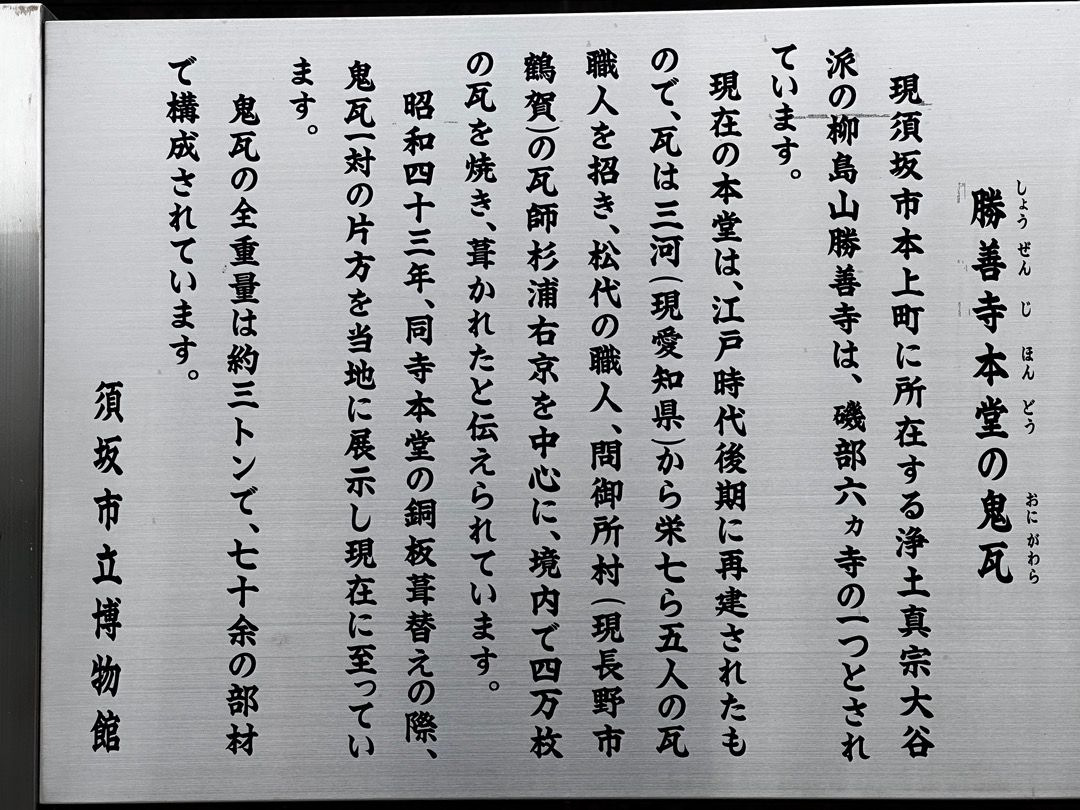 勝善寺本堂の鬼瓦
しょうぜんじほんどうおにがわら
現須坂市本上町に所在する浄土真宗大谷
派の柳島山勝善寺は、磯部六ヵ寺の一つとされ
ています。
現在の本堂は、江戸時代後期に再建されたも
ので、瓦は三河(現愛知県)から栄七ら五人の瓦
職人を招き、松代の職人、問御所村(現長野市
鶴賀)の瓦師杉浦右京を中心に、境内で四万枚
の瓦を焼き、葺かれたと伝えられています。
昭和四十三年、同寺本堂の銅板葺替えの際、
鬼瓦一対の片方を当地に展示し現在に至ってい
ます。
鬼瓦の全重量は約三トンで、七十余の部材
で構成されています。
須坂市立博物館